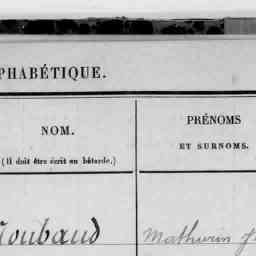 PHABÉTIQUE.
NOM.
(Il doit être écrit en bâtarde.)
PRÉNOMS
ET SURNOMS.
Noubaud
Mathurin